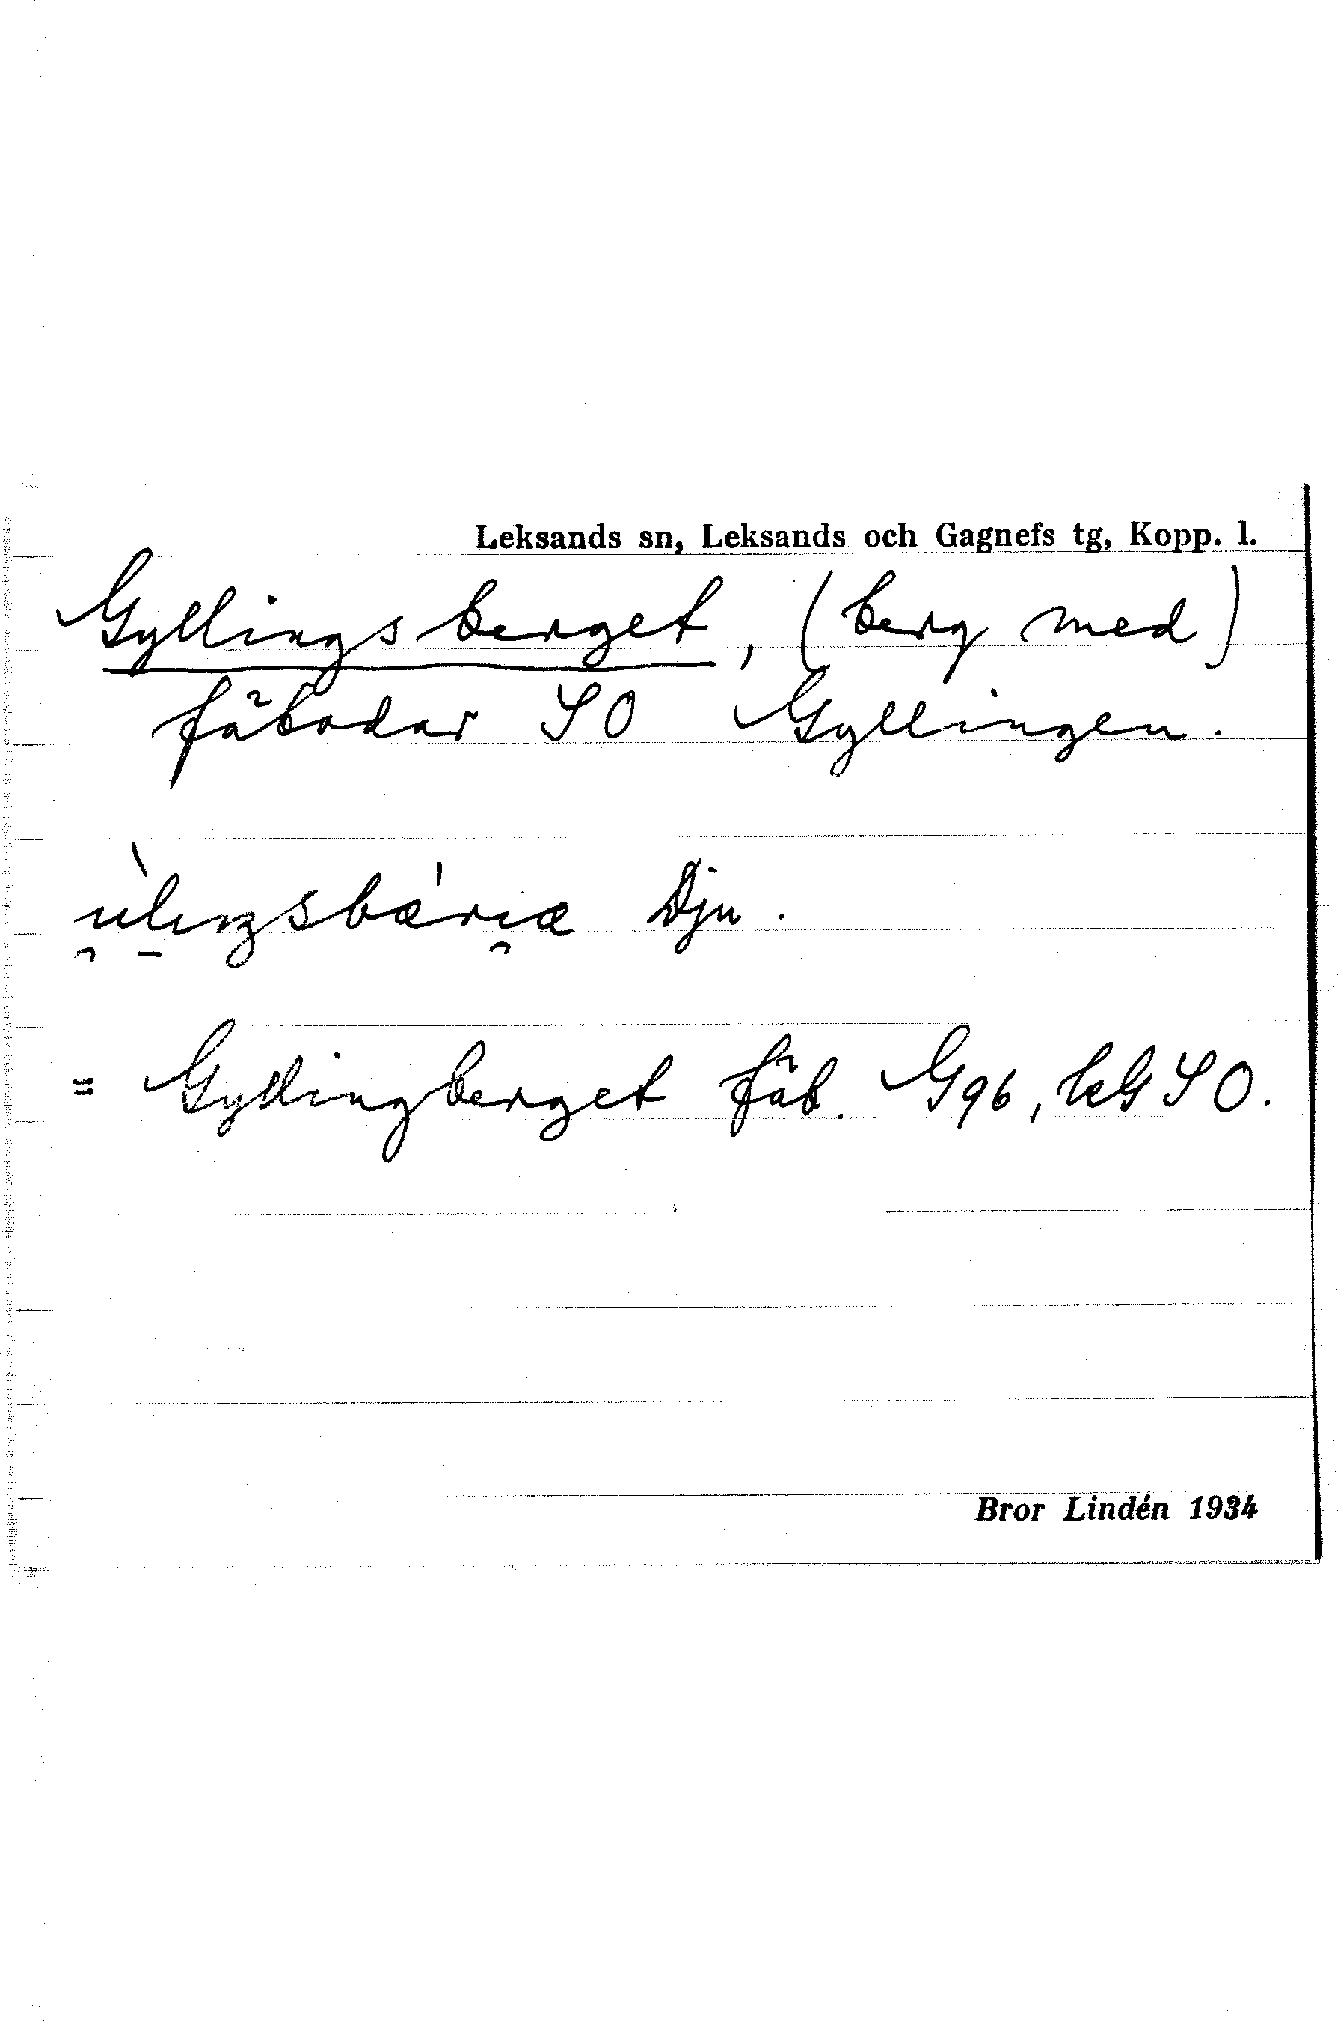 Leksands sn, Leksands och Gagnefs tg, Kopp. l.
Gyllingsberget, (berg med)
fäbodar SO Gyllingen.
Dju.
= Gyllingberget fäb. G96, kG SO.
Bror Lindén 1934